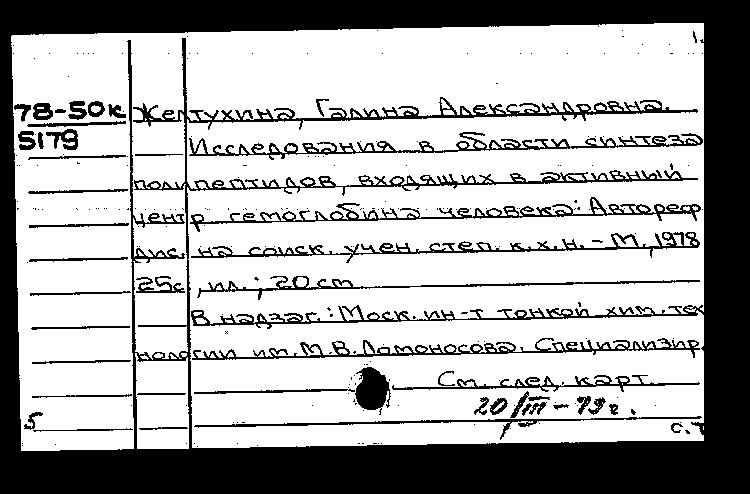 1.
78-50к Желтухина, Галина Александровна.
5179
Исследования в области синтеза
полипептидов, входящих в активный
центр гемоглобина человека: Автореф
дис. на соиск. учен. степ. к.х.н. - М., 1978
25с., ил.; 20 cm
В надзаг.: Моск. ин-т тонкой хим. тех
нологии им. М.В. Ломоносова. Специализир.
См. след. карт.
20/III - 79 г.
5
с.т